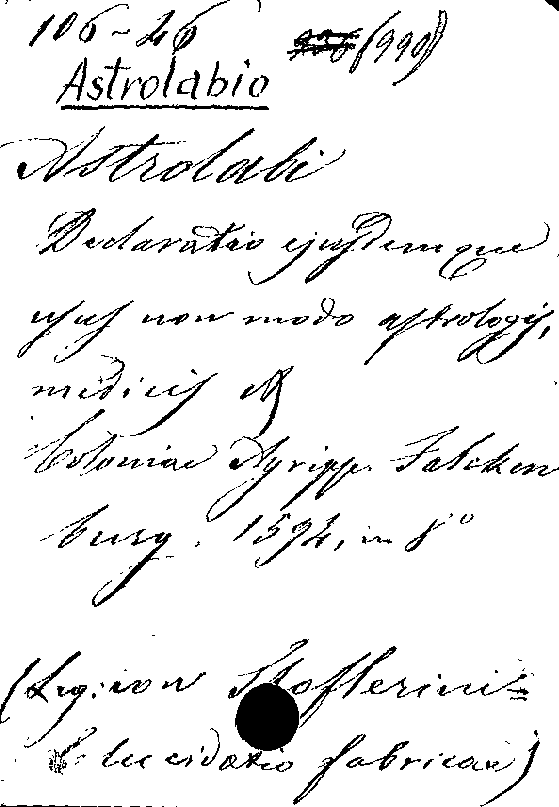 106-26 (990)
Astrolabio
Astrolabi
Declaratio ejusdemque
usus non modo astrologis,
medicis
Coloniae Agripp. Falcken
burg. 1594, in 8°
(Leg: con Stoflerini=
Elucidatio fabricae)